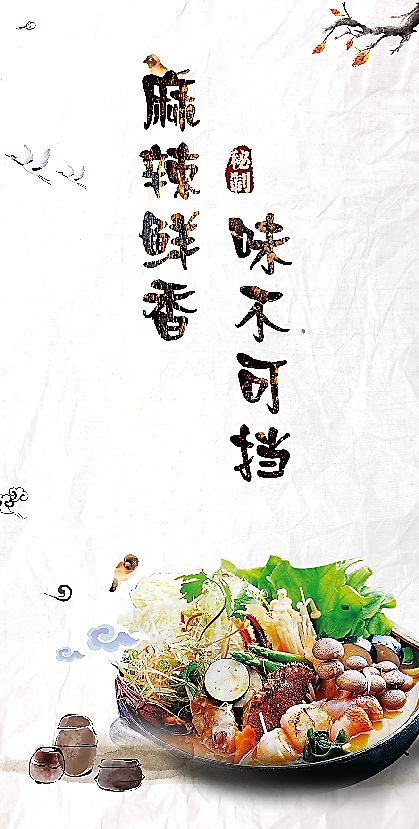 麻辣鲜香
秘制
味不可挡